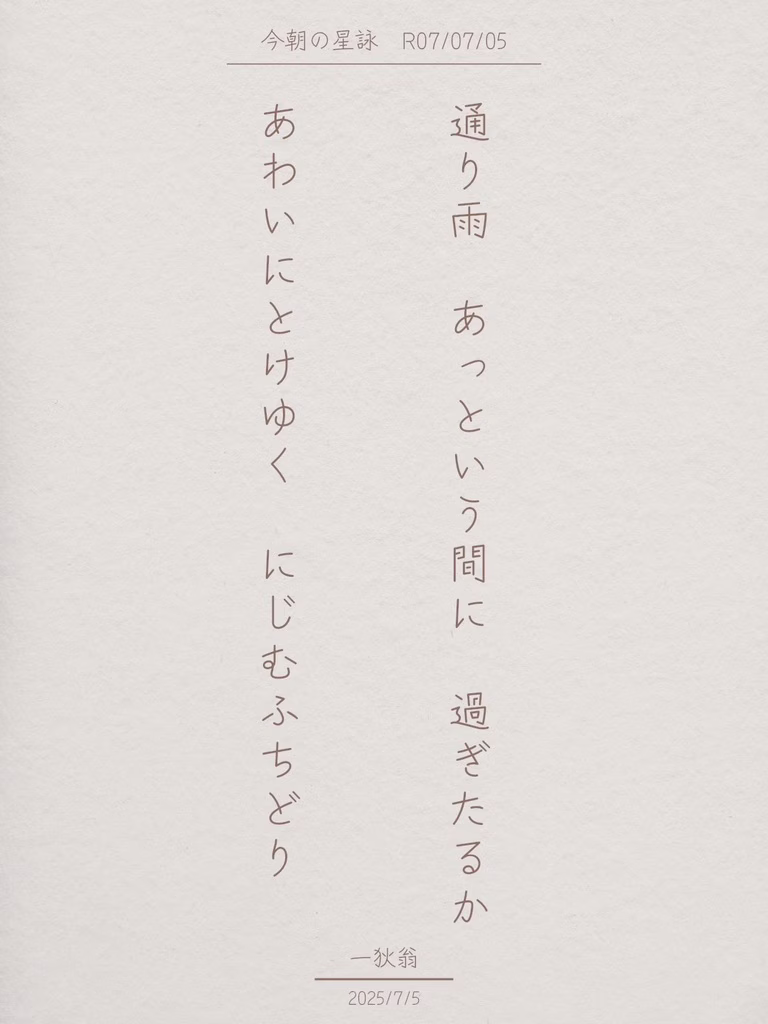 今朝の星詠　R07/07/05
通り雨　あっという間に　過ぎたるか
あわいにとけゆく　にじむふちどり
一狄翁
2025/7/5